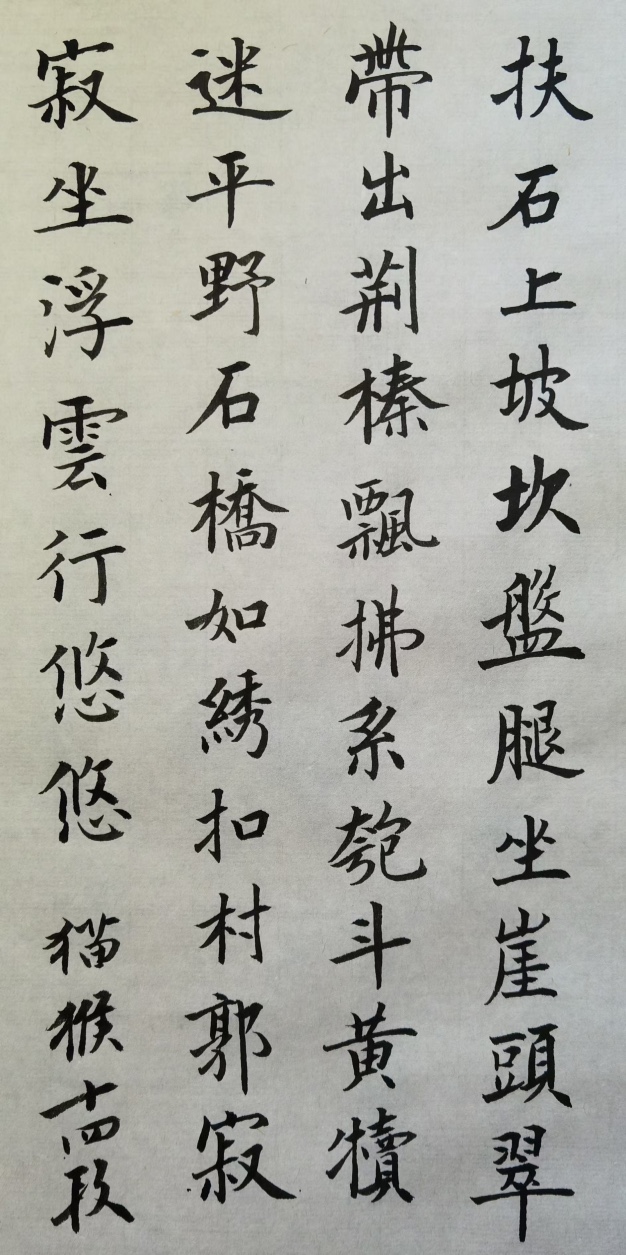 扶石上坡坎盤腿坐崖頭翠
帶出荆榛飄拂系匏斗黄犢
迷平野石橋如綉扣村郭寂
寂坐浮雲行悠悠 猫猴十四段